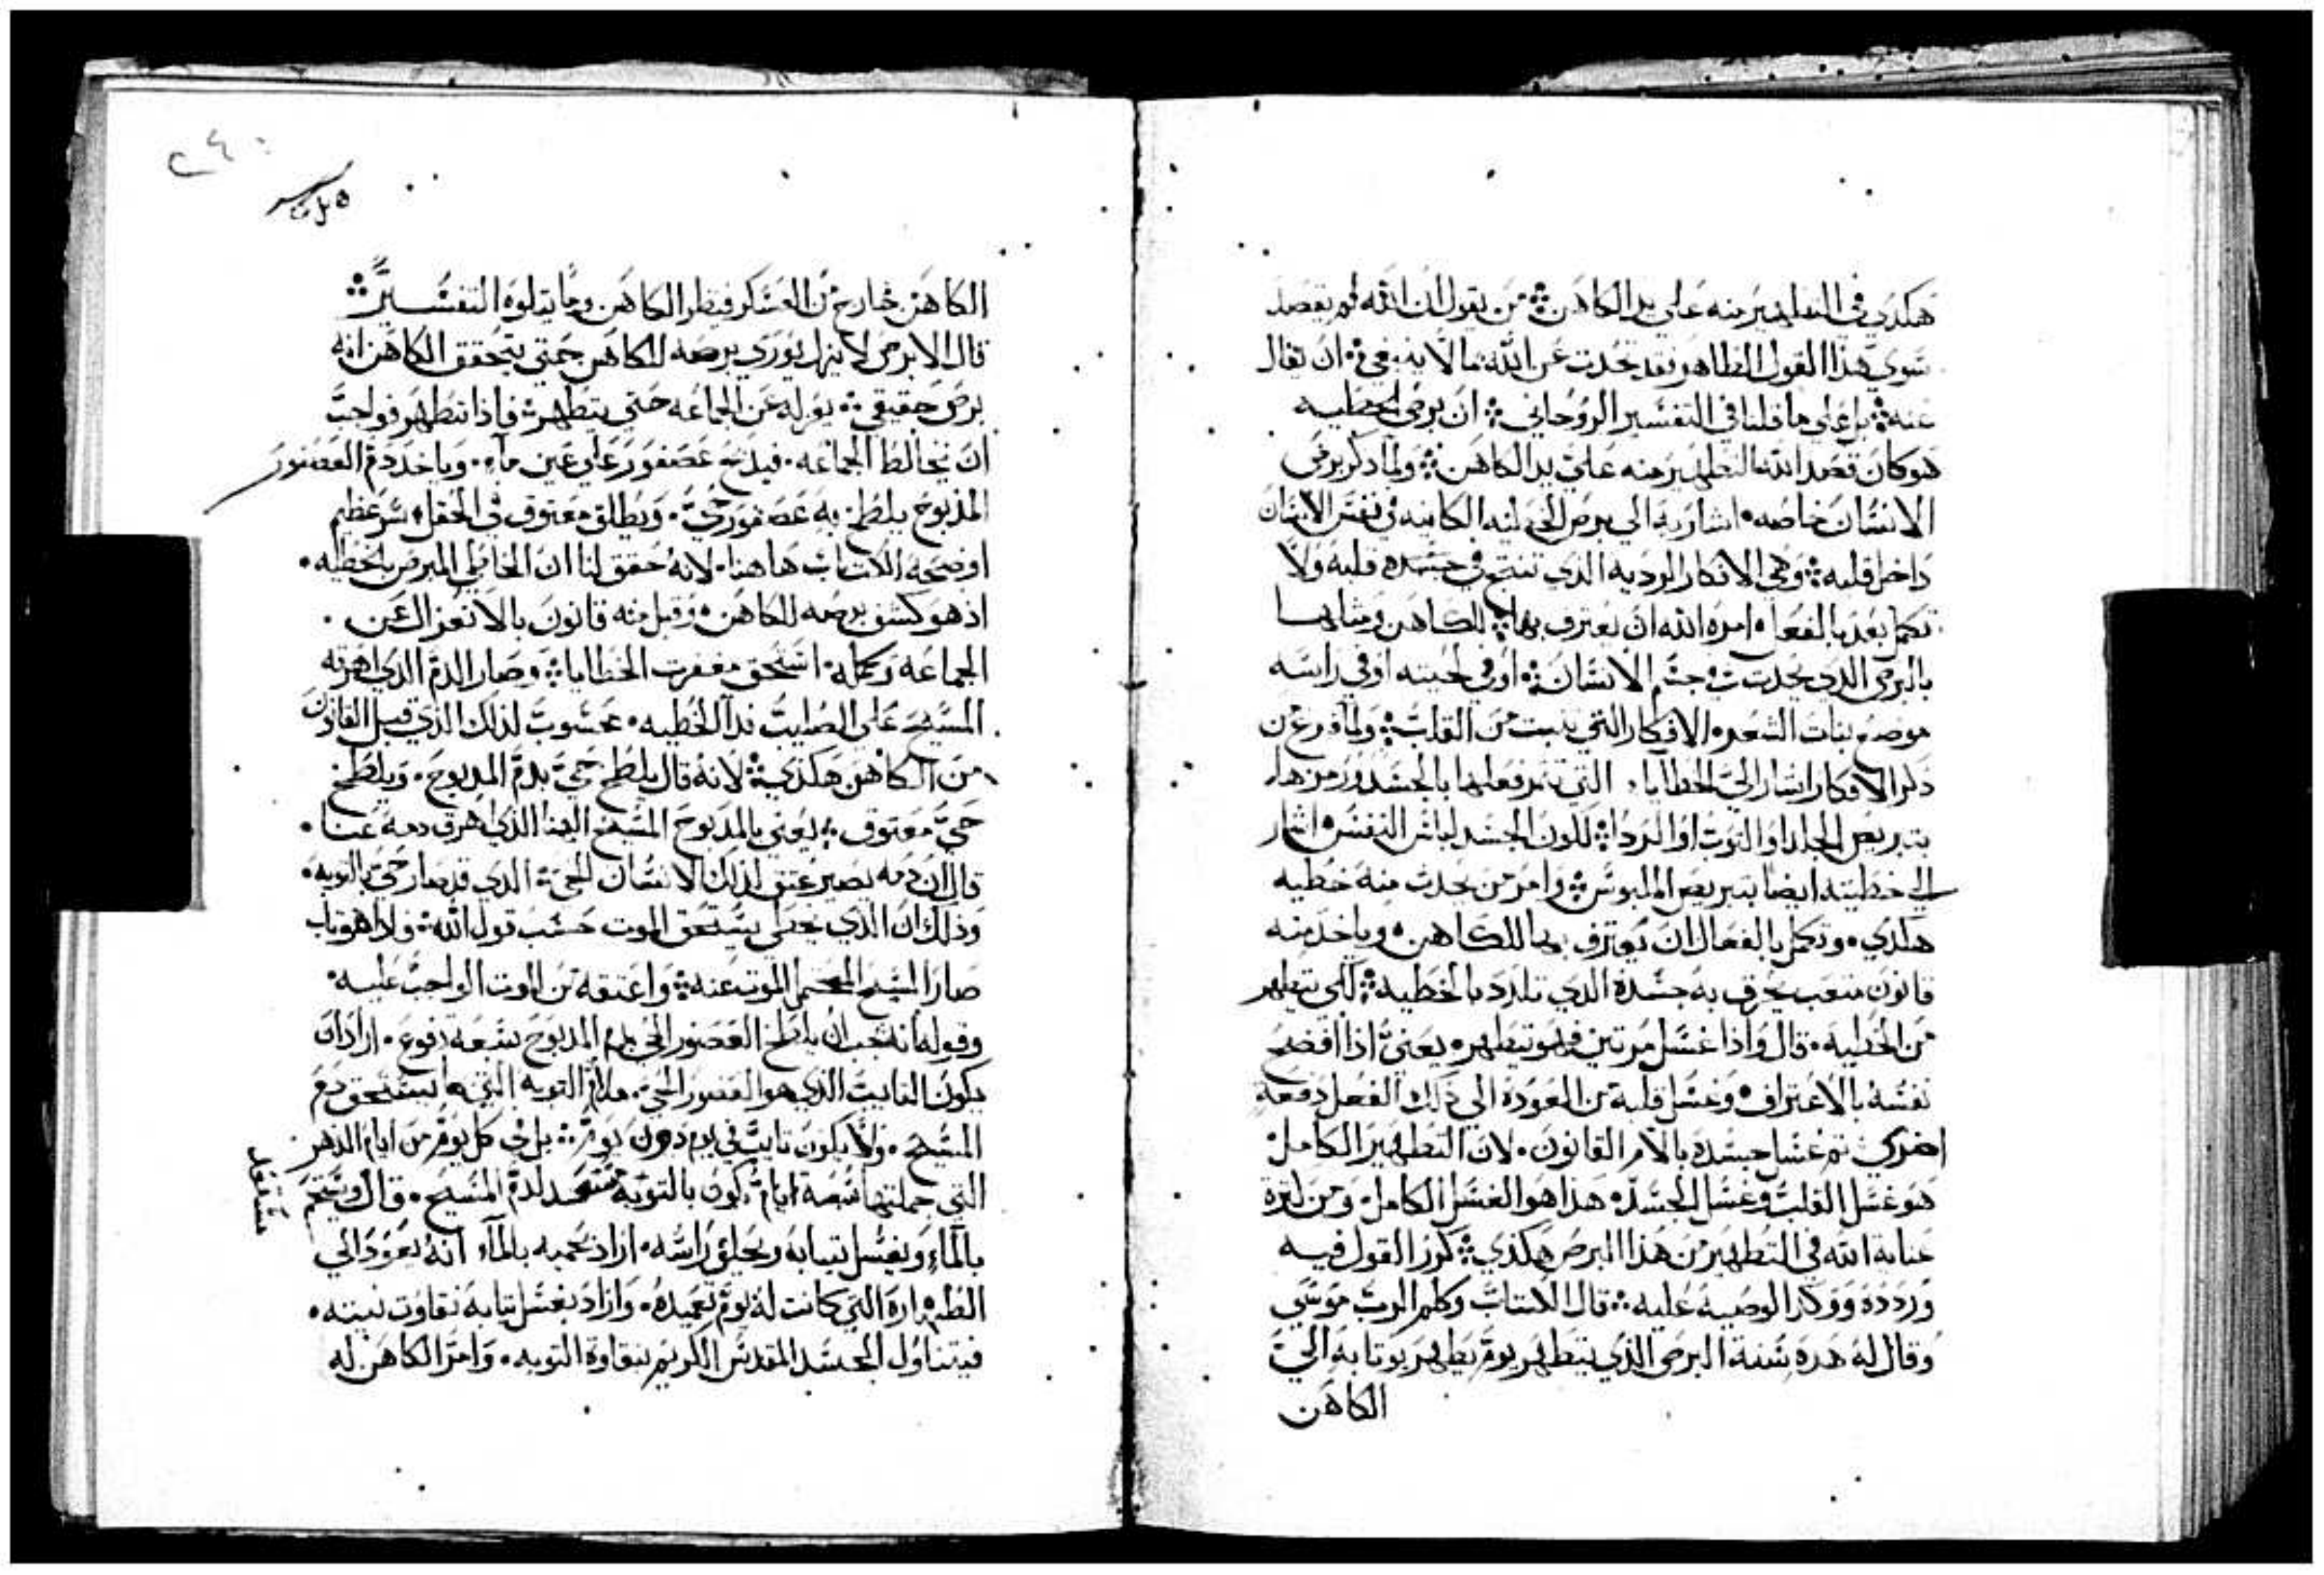 هكدي في التطهير منه علي يد الكاهن ؞ من يقول ان الله لم يقصد
سوي هذا القول الظاهر فقد تحدت عن الله ما لا ينبغي ان تقال
عنه ؞ بل علي ما قلنا في التفسير الروحاني ؞ ان برص الخطيه
هو كان قصد الله التطهير منه علي يد الكاهن ؞ ولما دكر برص
الانسان خاصه • اشار به الي برص الخطيه الكاينه في نفس الانسان
داخل قلبه ؞ وهي الافكار الرديه الدي تنتج في جسده قلبه ولا
تكمل بعد بالفعل • امره الله ان يعترف بها للكاهن ومثلها
بالبرص الدي يحدت في جسم الانسان ؞ او في لحيته او في راسه
موضع نبات الشعر • الافكار التي تنبت من القلب ؞ ولما فرغ من
دكر الافكار اشار الي الخطايا • التي تتم فعلها بالجسد ورمزها
بتبريص الجلد او التوب او الردا ؞ لكون الجسد لباس النفس • اشار
الي خطيته ايضا بتبريص الملبوس ؞ وامر من يحدث منه خطيه
هكدي • وتكمل بالفعال ان يعترف بها للكاهن • وياخد منه
قانون متعب يحرق به جسده الدي تلدد بالخطيه ؞ لكي يتطهر
من الخطيه • قال واذا غسل مرتين فهو يتطهر • يعني اذا افضح
نفسه بالاعتراف • وغسل قلبه من العوده الي ذلك الفعل دفعة
اخري تم غسل جسده بالام القانون • لان التطهير الكامل
هو غسل القلب وغسل الجسد • هذا هو الغسل الكامل • ومن لترة
عناية الله في التطهير من هذا البرص هكذي ؞ كرر القول فيه
وردده ووكد الوصيه عليه ؞ قال الكتاب وكلم الرب موسي
وقال له هده سنة البرص الذي يتطهر يوم يطهر يوتا به الي
الكاهن
٢٤٠
الكاهن خارج من العسكر فينظر الكاهن وما يتلوه التفسير ؞
قال الابرص لا يزل يوري برصه للكاهن حتي يتحقق الكاهن انه
برص حقيقي ؞ يعزله عن الجماعه حتي يتطهر ؞ فاذا تطهر فواجب
ان يخالط الجماعه • فيدبح عصفور علي عين ماء • وياخد دم العصفور
المدبوح يلطخ به عصفور حي • ويطلق معتوق في الحقل • سر عظيم
اوضحه الكتاب هاهنا • لانه حقق لنا ان الخاطي المبرص بالخطيه •
اذ هو كشف برصه للكاهن • وقبل منه قانون بالانعزال عن •
الجماعه وكمله • استحق مغفرت الخطايا ؞ وصار الدم الدي اهرقه
المسيح علي الصليب فدا الخطيه • محسوب لذلك الذي قبل القانون
من الكاهن هكذي ؞ لانه قال يلطخ حي بدم المدبوح • ويلطخ
حي معتوق ؞ يعني بالمدبوح المسيح الهنا الذي اهرق دمه عنا •
قال ان دمه يصير عتق لذلك الانسان الحي الدي قد صار حي بالتوبه •
وذلك ان الذي يخطي يستحق الموت حسب قول الله ؞ ولما هو تاب
صار المسيح المحتمل الموت عنه ؞ واعتقه من الموت الواجب عليه •
وقوله انه يجب ان يلطخ العصفور الحي بدم المدبوح سبعة دفوع • اراد ان
يكون التايب الذي هو العصفور الحي • ملازم التوبه التي بها يستحق دم
المسيح • ولا يكون تايب في يوم دون يوم ؞ بل في كل يوم من ايام الدهر
التي جملتها سبعة ايام يكون بالتوبة مستعد لدم المسيح • قال ويستحم
بالماء ويغسل تيابه ويحلق راسه • اراد بحميه بالماء انه يعود الي
الطهارة التي كانت له يوم تعميده • واراد بغسل تيابه نقاوت نيته •
فيتناول الجسد المقدس الكريم بنقاوة التوبه • وامر الكاهن له